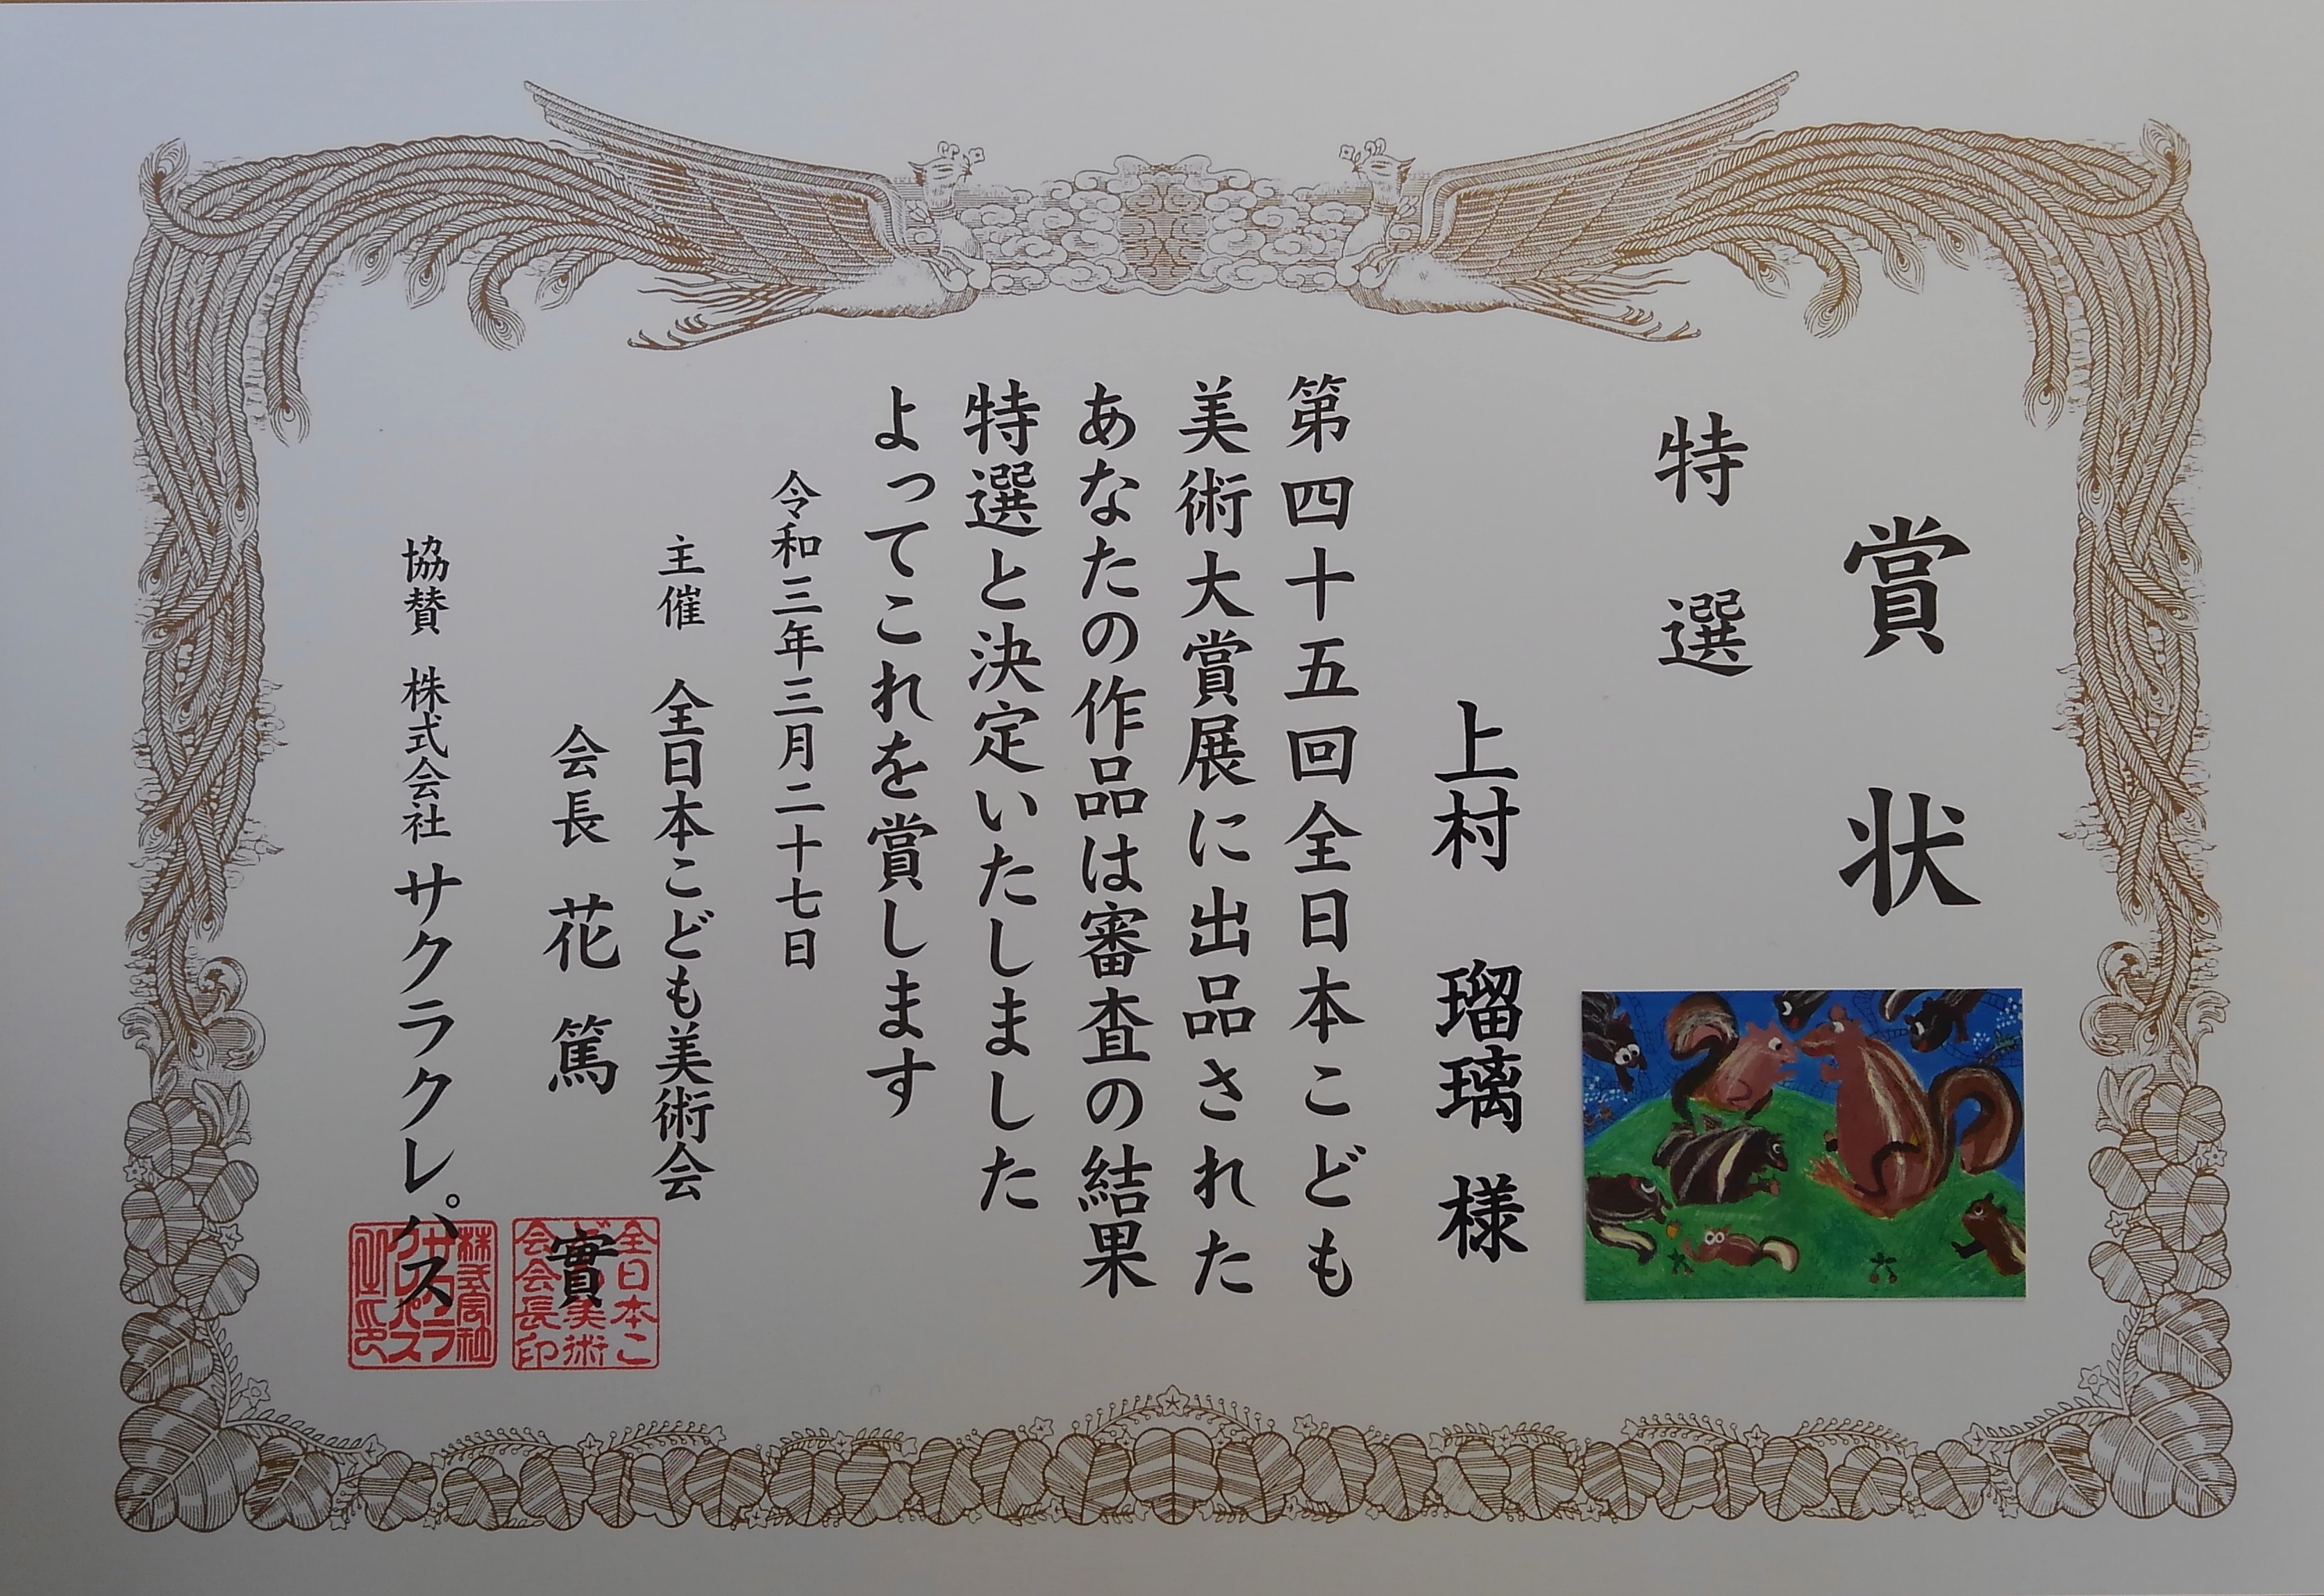 賞状
特選
上村 瑠璃 様
第四十五回全日本こども
美術大賞展に出品された
あなたの作品は審査の結果
特選と決定いたしました
よってこれを賞します
令和三年三月二十七日
主催 全日本こども美術会
会長 花 篤 實
全日本こ
ども美術
会会長印
協賛 株式会社 サクラクレパス
株式会社
サクラ
クレパス